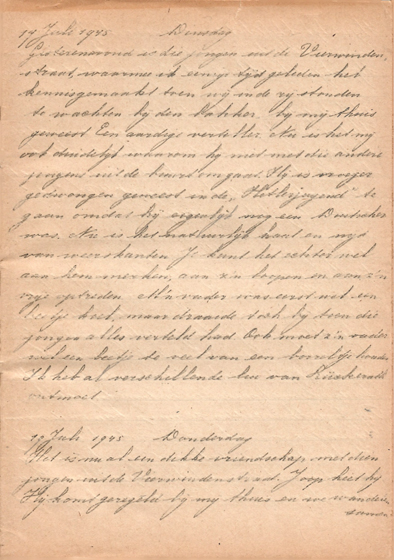 17 Juli 1945 Dinsdag
Gisterenavond is die jongen uit de Vierwinden-
straat, waarmee ik eenige tijd geleden heb
kennisgemaakt toen wij in de rij stonden
te wachten bij den bakker, bij mij thuis
geweest. Een aardige verteller. Nu is het mij
ook duidelijk waarom hij niet met die andere
jongens uit de buurt omgaat. Hij is vroeger
gedwongen geweest in de "Hitlerjugend" te
gaan omdat hij eigenlijk nog een Duitscher
was. Nu is het natuurlijk haat en nijd
van weerskanten. Je kunt het echter wel
aan hem merken, aan z'n loopen en aan z'n
vrije optreden. M'n vader was eerst wel een
beetje boos, maar draaide toch bij toen die
jongen alles verteld had. Ook moet z'n vader
wel een beetje te veel van een borreltje houden
Ik heb al verschillende lui van
ontmoet.
19 Juli 1945 Donderdag
Het is nu al een dikke vriendschap met dien
jongen uit de Vierwindenstraat. Joop heet hij
Hij komt geregeld bij mij thuis en we wandelen
samen